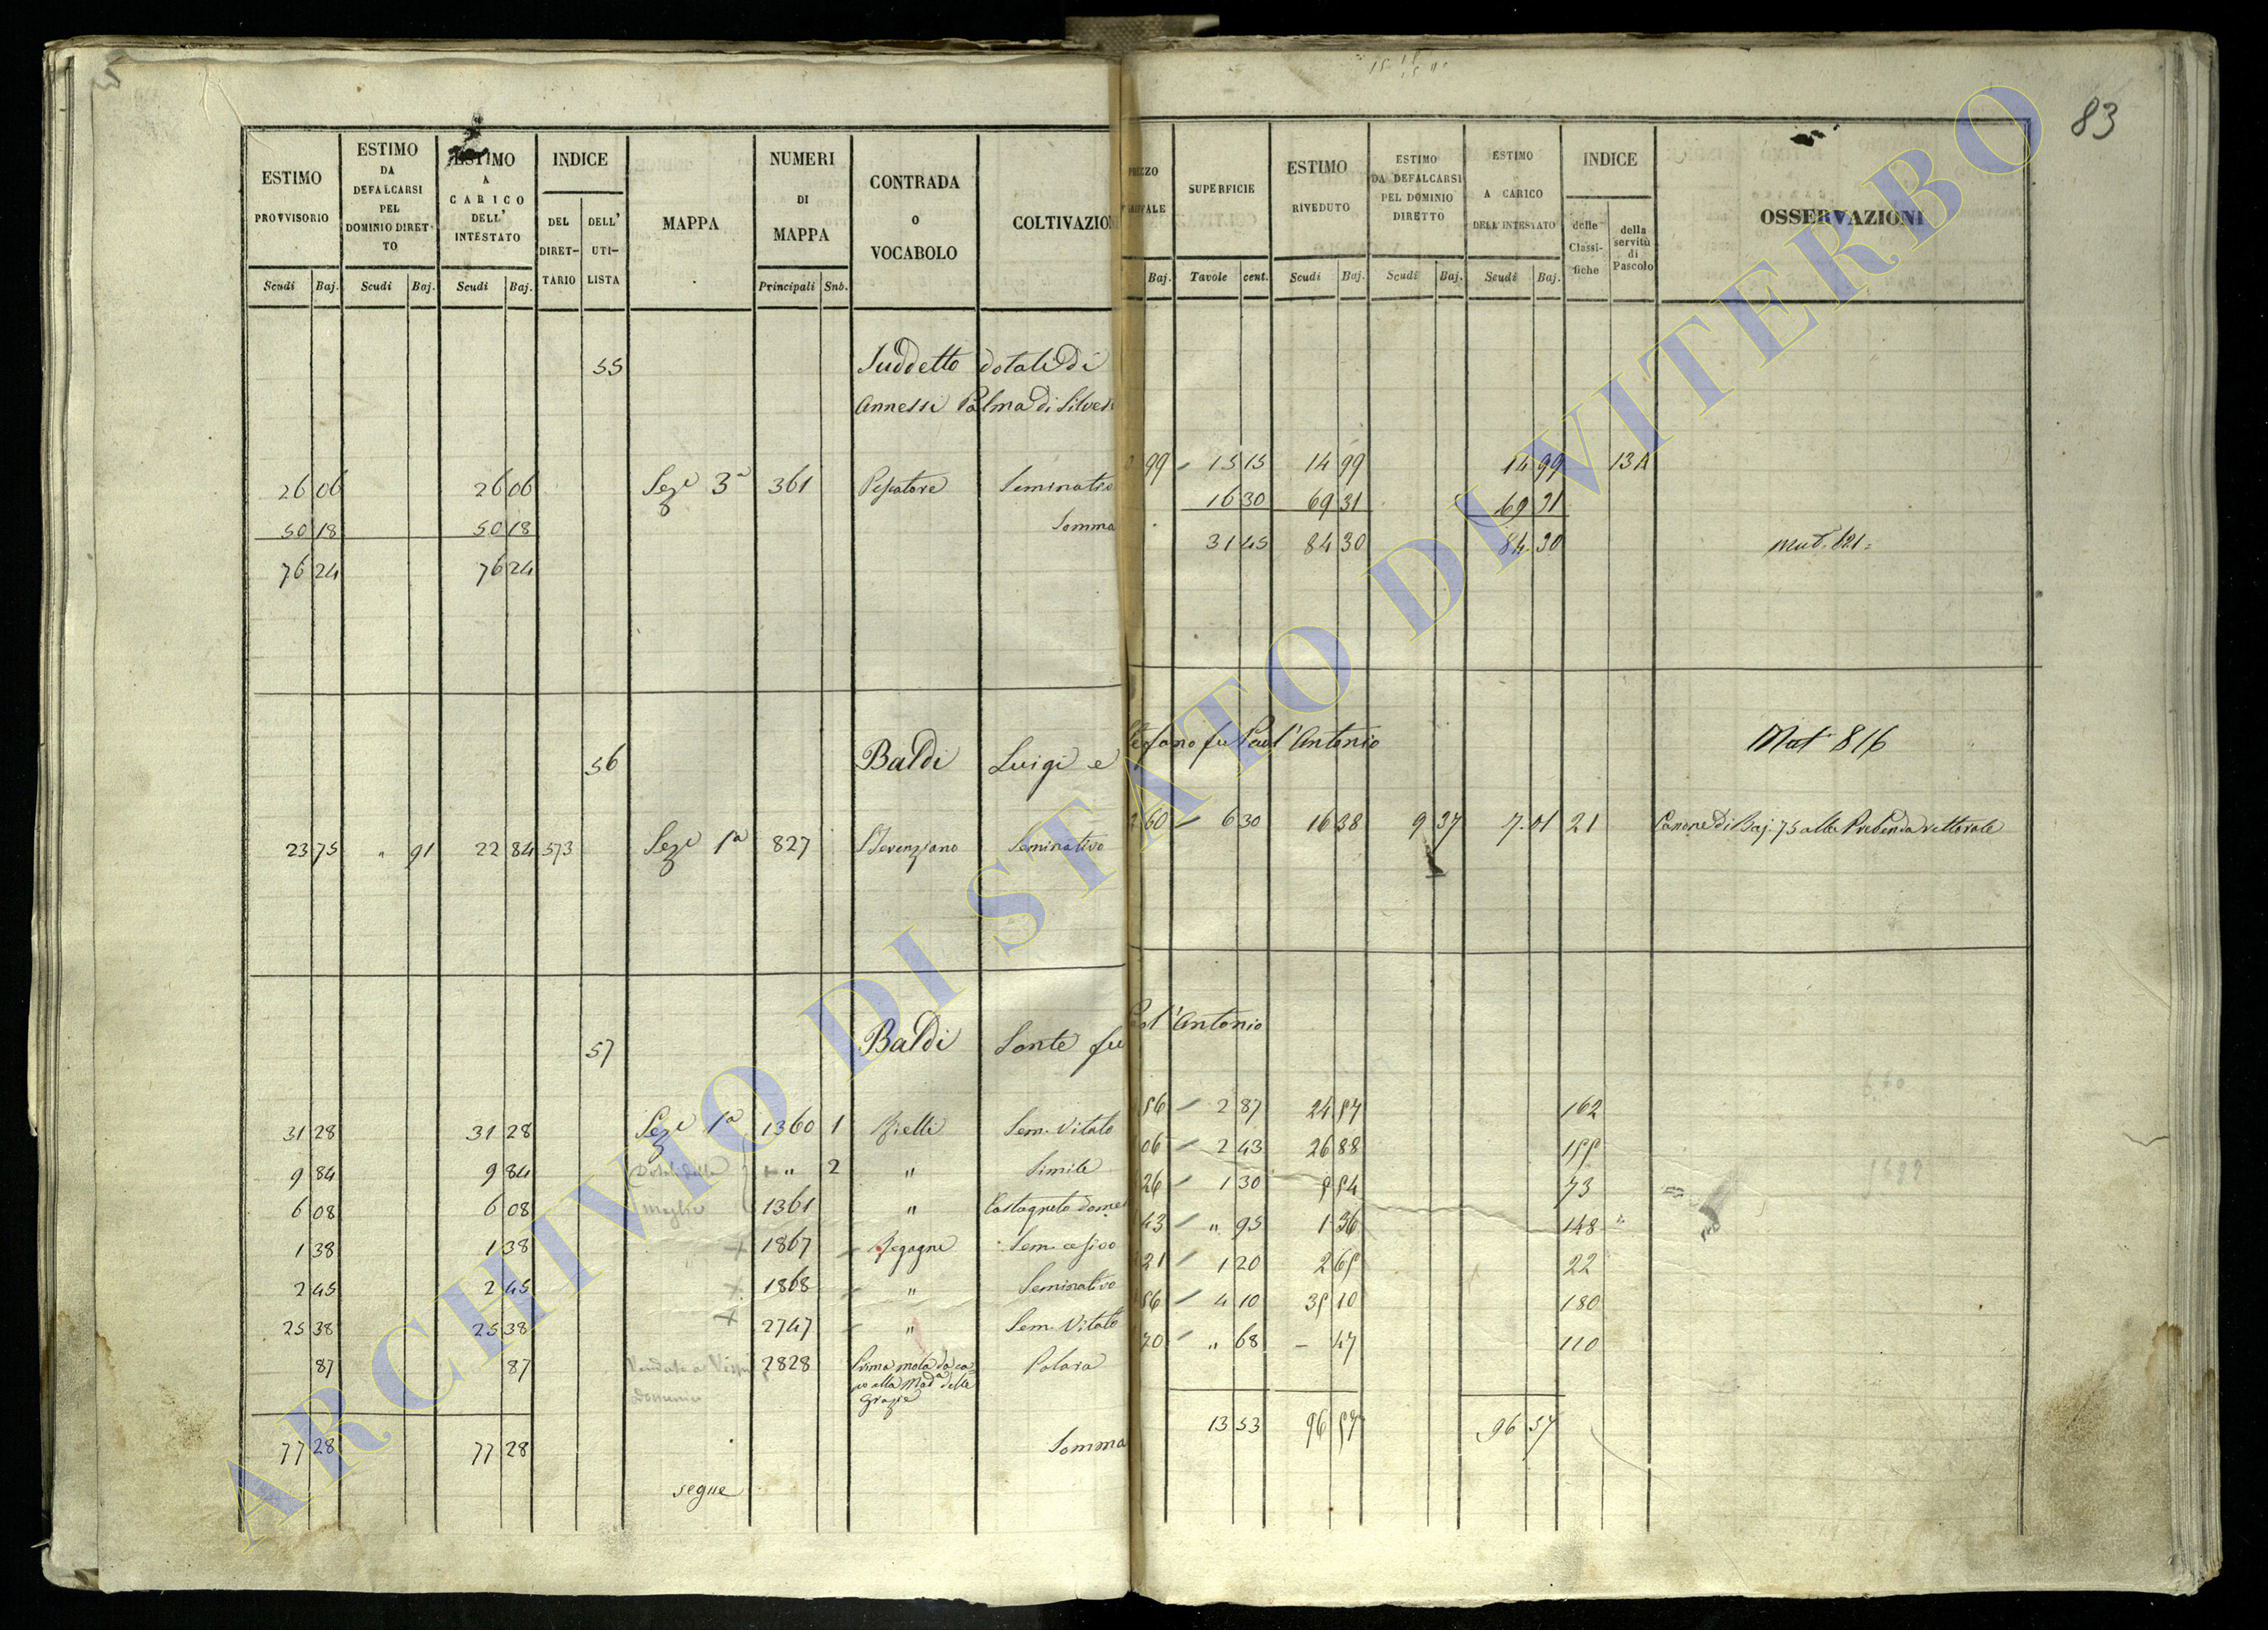 83
ESTIMO PROVVISORIO
ESTIMO DA DEFALCARSI PEL DOMINIO DIRETTO
ESTIMO A CARICO DELL' INTESTATO
INDICE
DEL DIRETTARIO
DELL' UTILISTA
MAPPA
NUMERI DI MAPPA
CONTRADA O VOCABOLO
COLTIVAZION
SUPERFICIE
ESTIMO RIVEDUTO
ESTIMO DA DEFALCARSI PEL DOMINIO DIRETTO
ESTIMO A CARICO DELL'INTESTATO
INDICE
delle Classifiche
della servitù di Pascolo
OSSERVAZIONI
Scudi Baj. Scudi Baj. Scudi Baj. Principali Sub. Baj. Tavole cent. Scudi Baj. Scudi Baj. Scudi Baj.
55 Suddetto dotali di
Annessi Palma di Silves
26 06 26 06 Sez.e 3a 361 Pescatore Seminativo 99 15 15 14 99 14 99 13A
50 18 50 18 Somma 16 30 69 31 69 31
76 24 76 24 31 45 84 30 84 30 Mut. 621=
56 Baldi Luigi e Stefano fu Paol'Antonio Mut 816
23 75 " 91 22 84 573 Sez.e 1a 827 S Terenziano Seminativo 60 6 30 16 38 9 37 7.01 21 Canone di Baj. 75 alla Prebenda rettorale
57 Baldi Sante fu Paol'Antonio
31 28 31 28 Sez.e 1a 1360 1 Rielli Sem. Vitato 86 2 87 24 57 162
9 84 9 84 Dotali della " 2 " Simile 06 2 43 26 88 155
6 08 6 08 moglie 1361 " Castagneto dome 26 1 30 5 54 73 =
1 38 1 38 + 1867 Regagne Sem. cesivo 43 " 95 1 36 148 "
2 45 2 45 + 1868 " Seminativo 21 1 20 2 65 22
25 38 25 38 + 2747 " Sem. Vitato 86 4 10 35 10 180
87 87 2828 Prima mola da capo alla Mad.a delle Grazie Polara 70 " 68 - 47 110
77 28 77 28 Somma 13 53 96 57 96 57
segue
ARCHIVIO DI STATO DI VITERBO